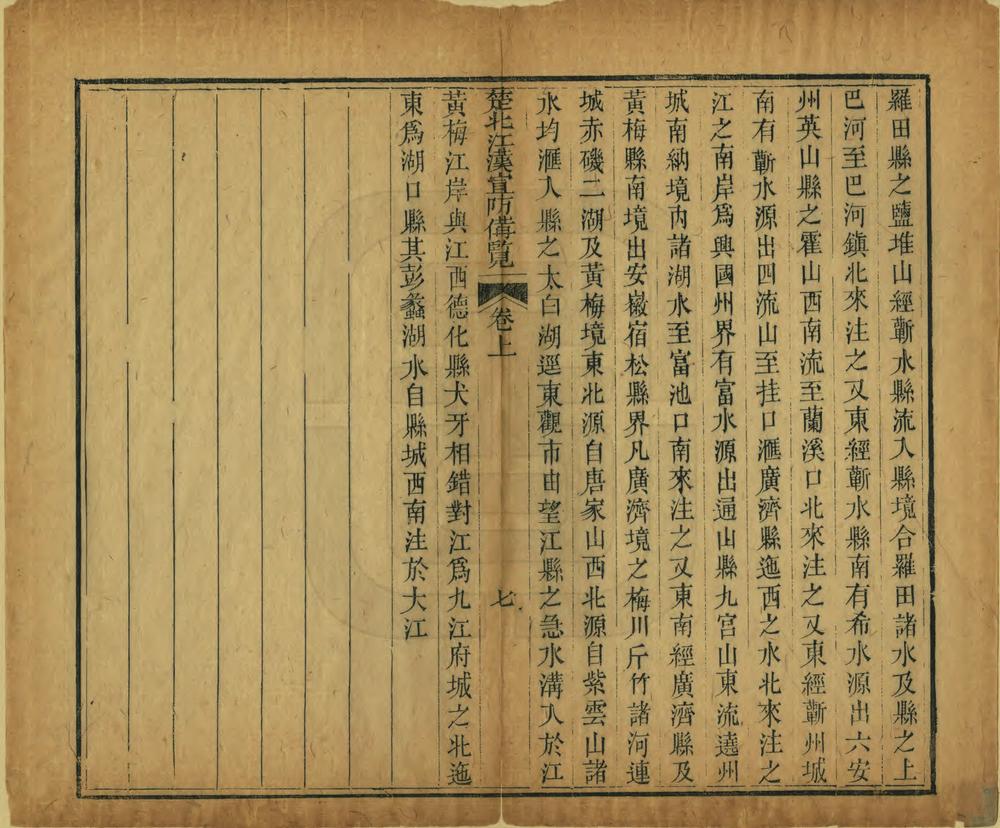 羅田縣之鹽堆山經蘄水縣流入縣境合羅田諸水及縣之上
巴河至巴河鎮北來注之又東經蘄水縣南有希水源出六安
州英山縣之霍山西南流至蘭溪口北來注之又東經蘄州城
南有蘄水源出四流山至挂口滙廣濟縣迤西之水北來注之
江之南岸爲興國州界有富水源出通山縣九宮山東流遶州
城南納境內諸湖水至富池口南來注之又東南經廣濟縣及
黃梅縣南境出安徽宿松縣界凡廣濟境之梅川斤竹諸河連
城赤磯二湖及黃梅境東北源自唐家山西北源自紫雲山諸
水均滙入縣之太白湖逕東觀市由望江縣之急水溝入於江
楚北江漢宣防備覽 卷上 七
黃梅江岸與江西德化縣犬牙相錯對江爲九江府城之北迤
東爲湖口縣其彭蠡湖水自縣城西南注於大江